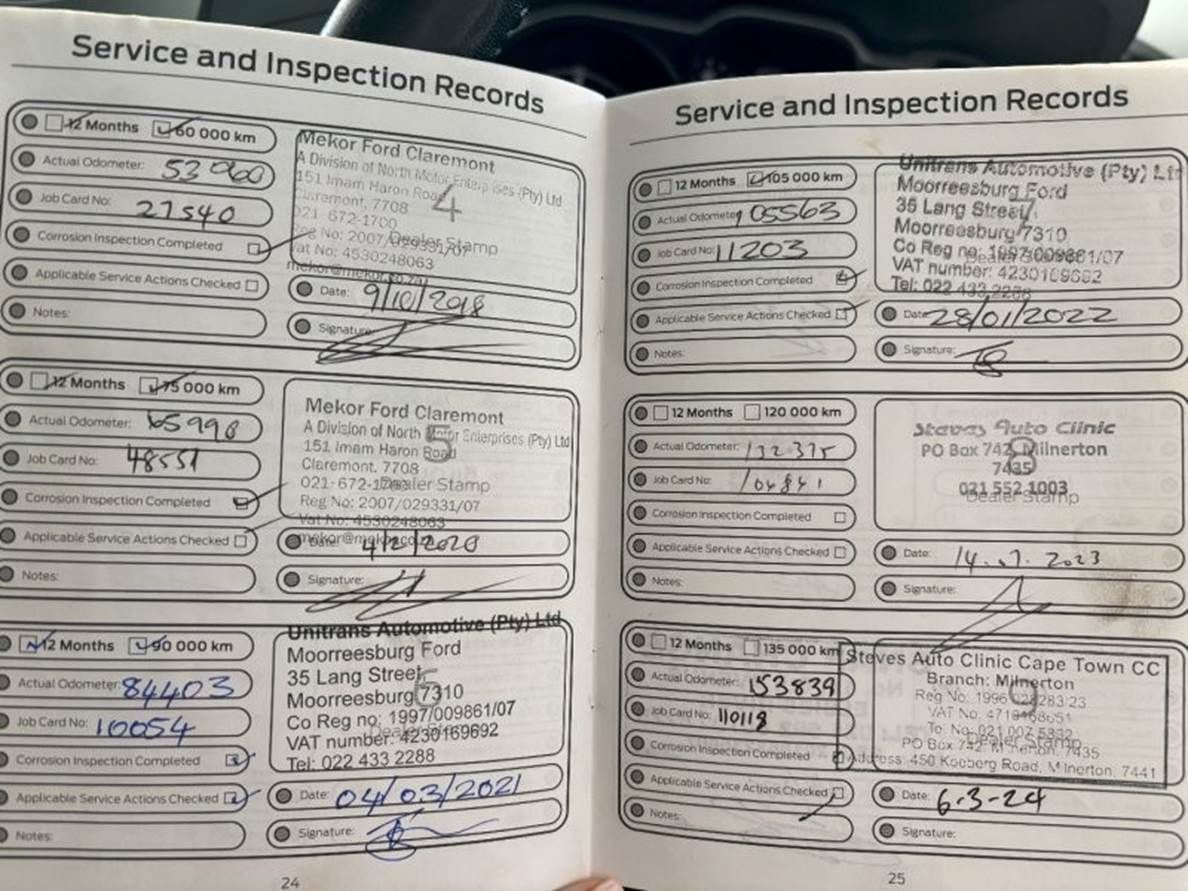 Service and Inspection Records
12 Months 60 000 km
Actual Odometer: 53960
Job Card No: 27540
Corrosion Inspection Completed
Applicable Service Actions Checked
Notes:
Mekor Ford Claremont
A Division of North Motor Enterprises (Pty) Ltd
151 Imam Haron Road
4
Claremont, 7708
021-672-1700
Reg No: 2007/029331/07
Dealer Stamp
Vat No: 4530248063
Date: 9/10/2018
Signature:
12 Months 75 000 km
Actual Odometer: 65998
Job Card No: 48551
Corrosion Inspection Completed
Applicable Service Actions Checked
Notes:
Mekor Ford Claremont
A Division of North Motor Enterprises (Pty) Ltd
5
151 Imam Haron Road
Claremont, 7708
021-672-1700
Dealer Stamp
Reg No: 2007/029331/07
Vat No: 4530248063
Date: 4/2/2020
Signature:
12 Months 90 000 km
Actual Odometer: 84403
Job Card No: 10054
Corrosion Inspection Completed
Applicable Service Actions Checked
Notes:
Unitrans Automotive (Pty) Ltd
Moorreesburg Ford
35 Lang Street
Moorreesburg 7310
Co Reg no: 1997/009861/07
Dealer Stamp
VAT number: 4230169692
Tel: 022 433 2288
Date: 04/03/2021
Signature:
24
Service and Inspection Records
12 Months 105 000 km
Actual Odometer: 105563
Job Card No: 11203
Corrosion Inspection Completed
Applicable Service Actions Checked
Notes:
Unitrans Automotive (Pty) Lt
Moorreesburg Ford
35 Lang Street
7
Moorreesburg 7310
Co Reg no: 1997/009861/07
Dealer Stamp
VAT number: 4230169692
Tel: 022 433 2288
Date: 28/01/2022
Signature:
12 Months 120 000 km
Actual Odometer: 132375
Job Card No: 104841
Corrosion Inspection Completed
Applicable Service Actions Checked
Notes:
Steves Auto Clinic
PO Box 742, Milnerton
8
7435
021 552 1003
Dealer Stamp
Date: 14.07.2023
Signature:
12 Months 135 000 km
Actual Odometer: 153839
Job Card No: 110118
Corrosion Inspection Completed
Applicable Service Actions Checked
Notes:
Steves Auto Clinic Cape Town CC
Branch: Milnerton
9
Dealer Stamp
PO Box 742, Milnerton, 7435
Address: 450 Koeberg Road, Milnerton, 7441
Date: 6-3-24
Signature:
25